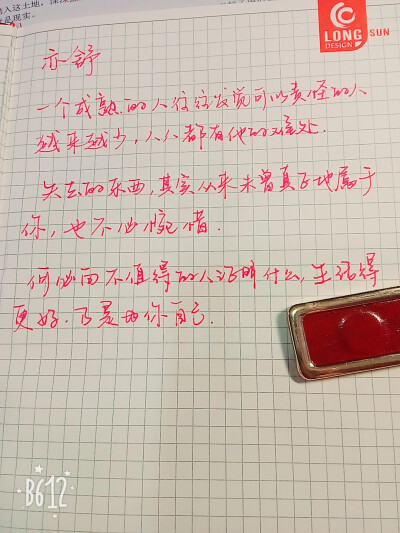 入这土地，深深
是现实.
LONG
DESIGN
SUN
亦舒
一个成熟的人往往发觉可以责怪的人
越来越少，人人都有他的难处.
失去的东西，其实从来未曾真正地属于
你，也不必惋惜.
何必向不值得的人证明什么，生活得
更好.乃是为你自己.
B612